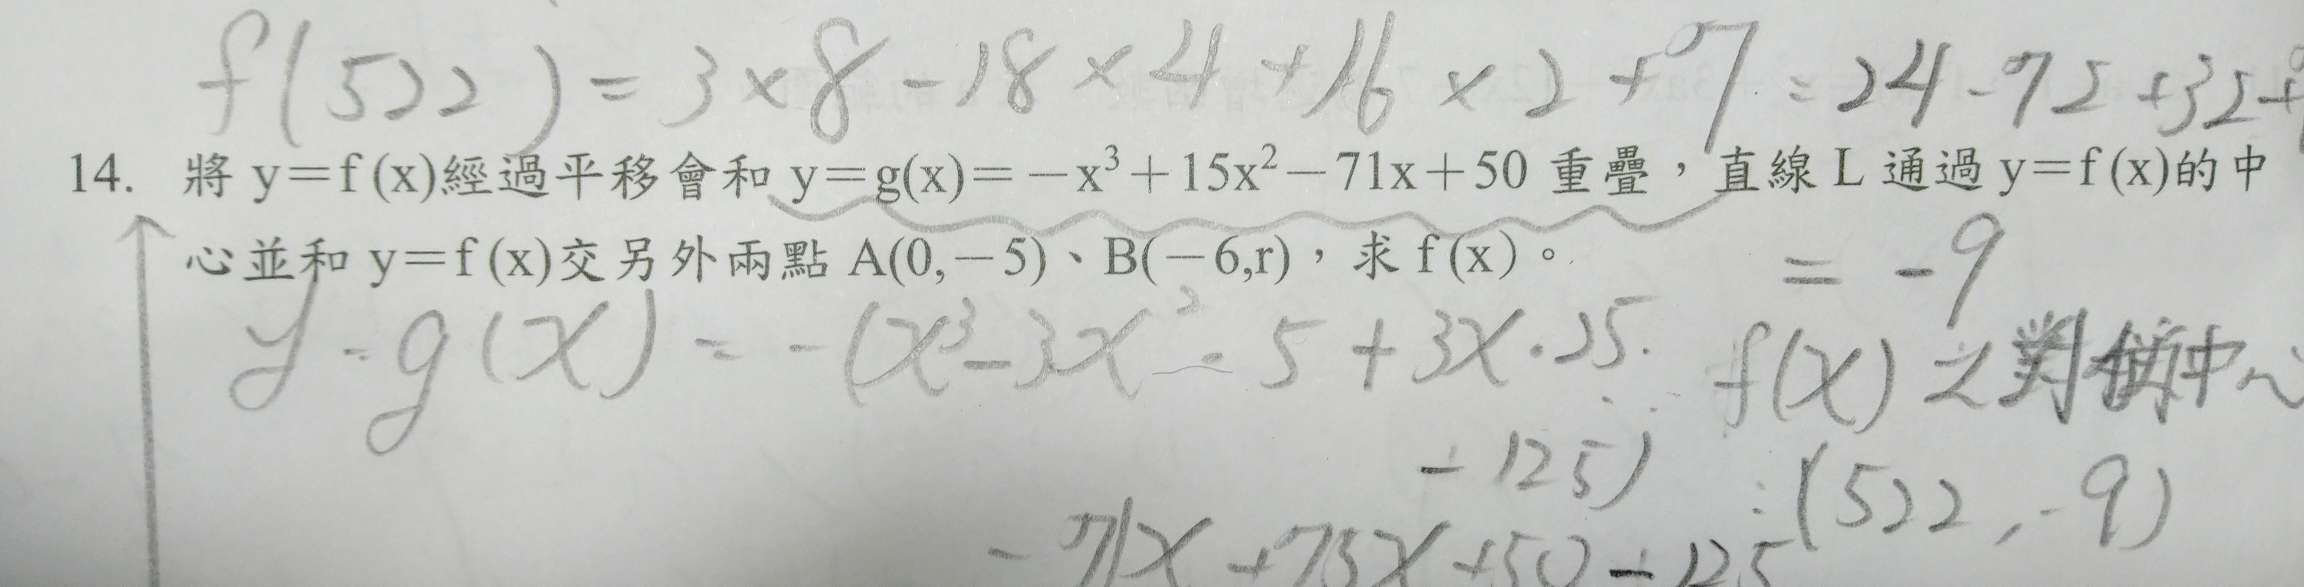 f(522) = 3×8-18×4+16×2+7 = 24-72+32+
14. 將 y＝f (x)經過平移會和 y＝g(x)＝－x³＋15x²－71x＋50 重疊，直線 L 通過 y＝f (x)的中
心並和 y＝f (x)交另外兩點 A(0,－5)、B(－6,r)，求 f (x)。
= -9
y=g(x) = -(x³-3x²·5+3x·25
-125)
f(x)之對稱中心
:(522,-9)
-71x+75x+50-125